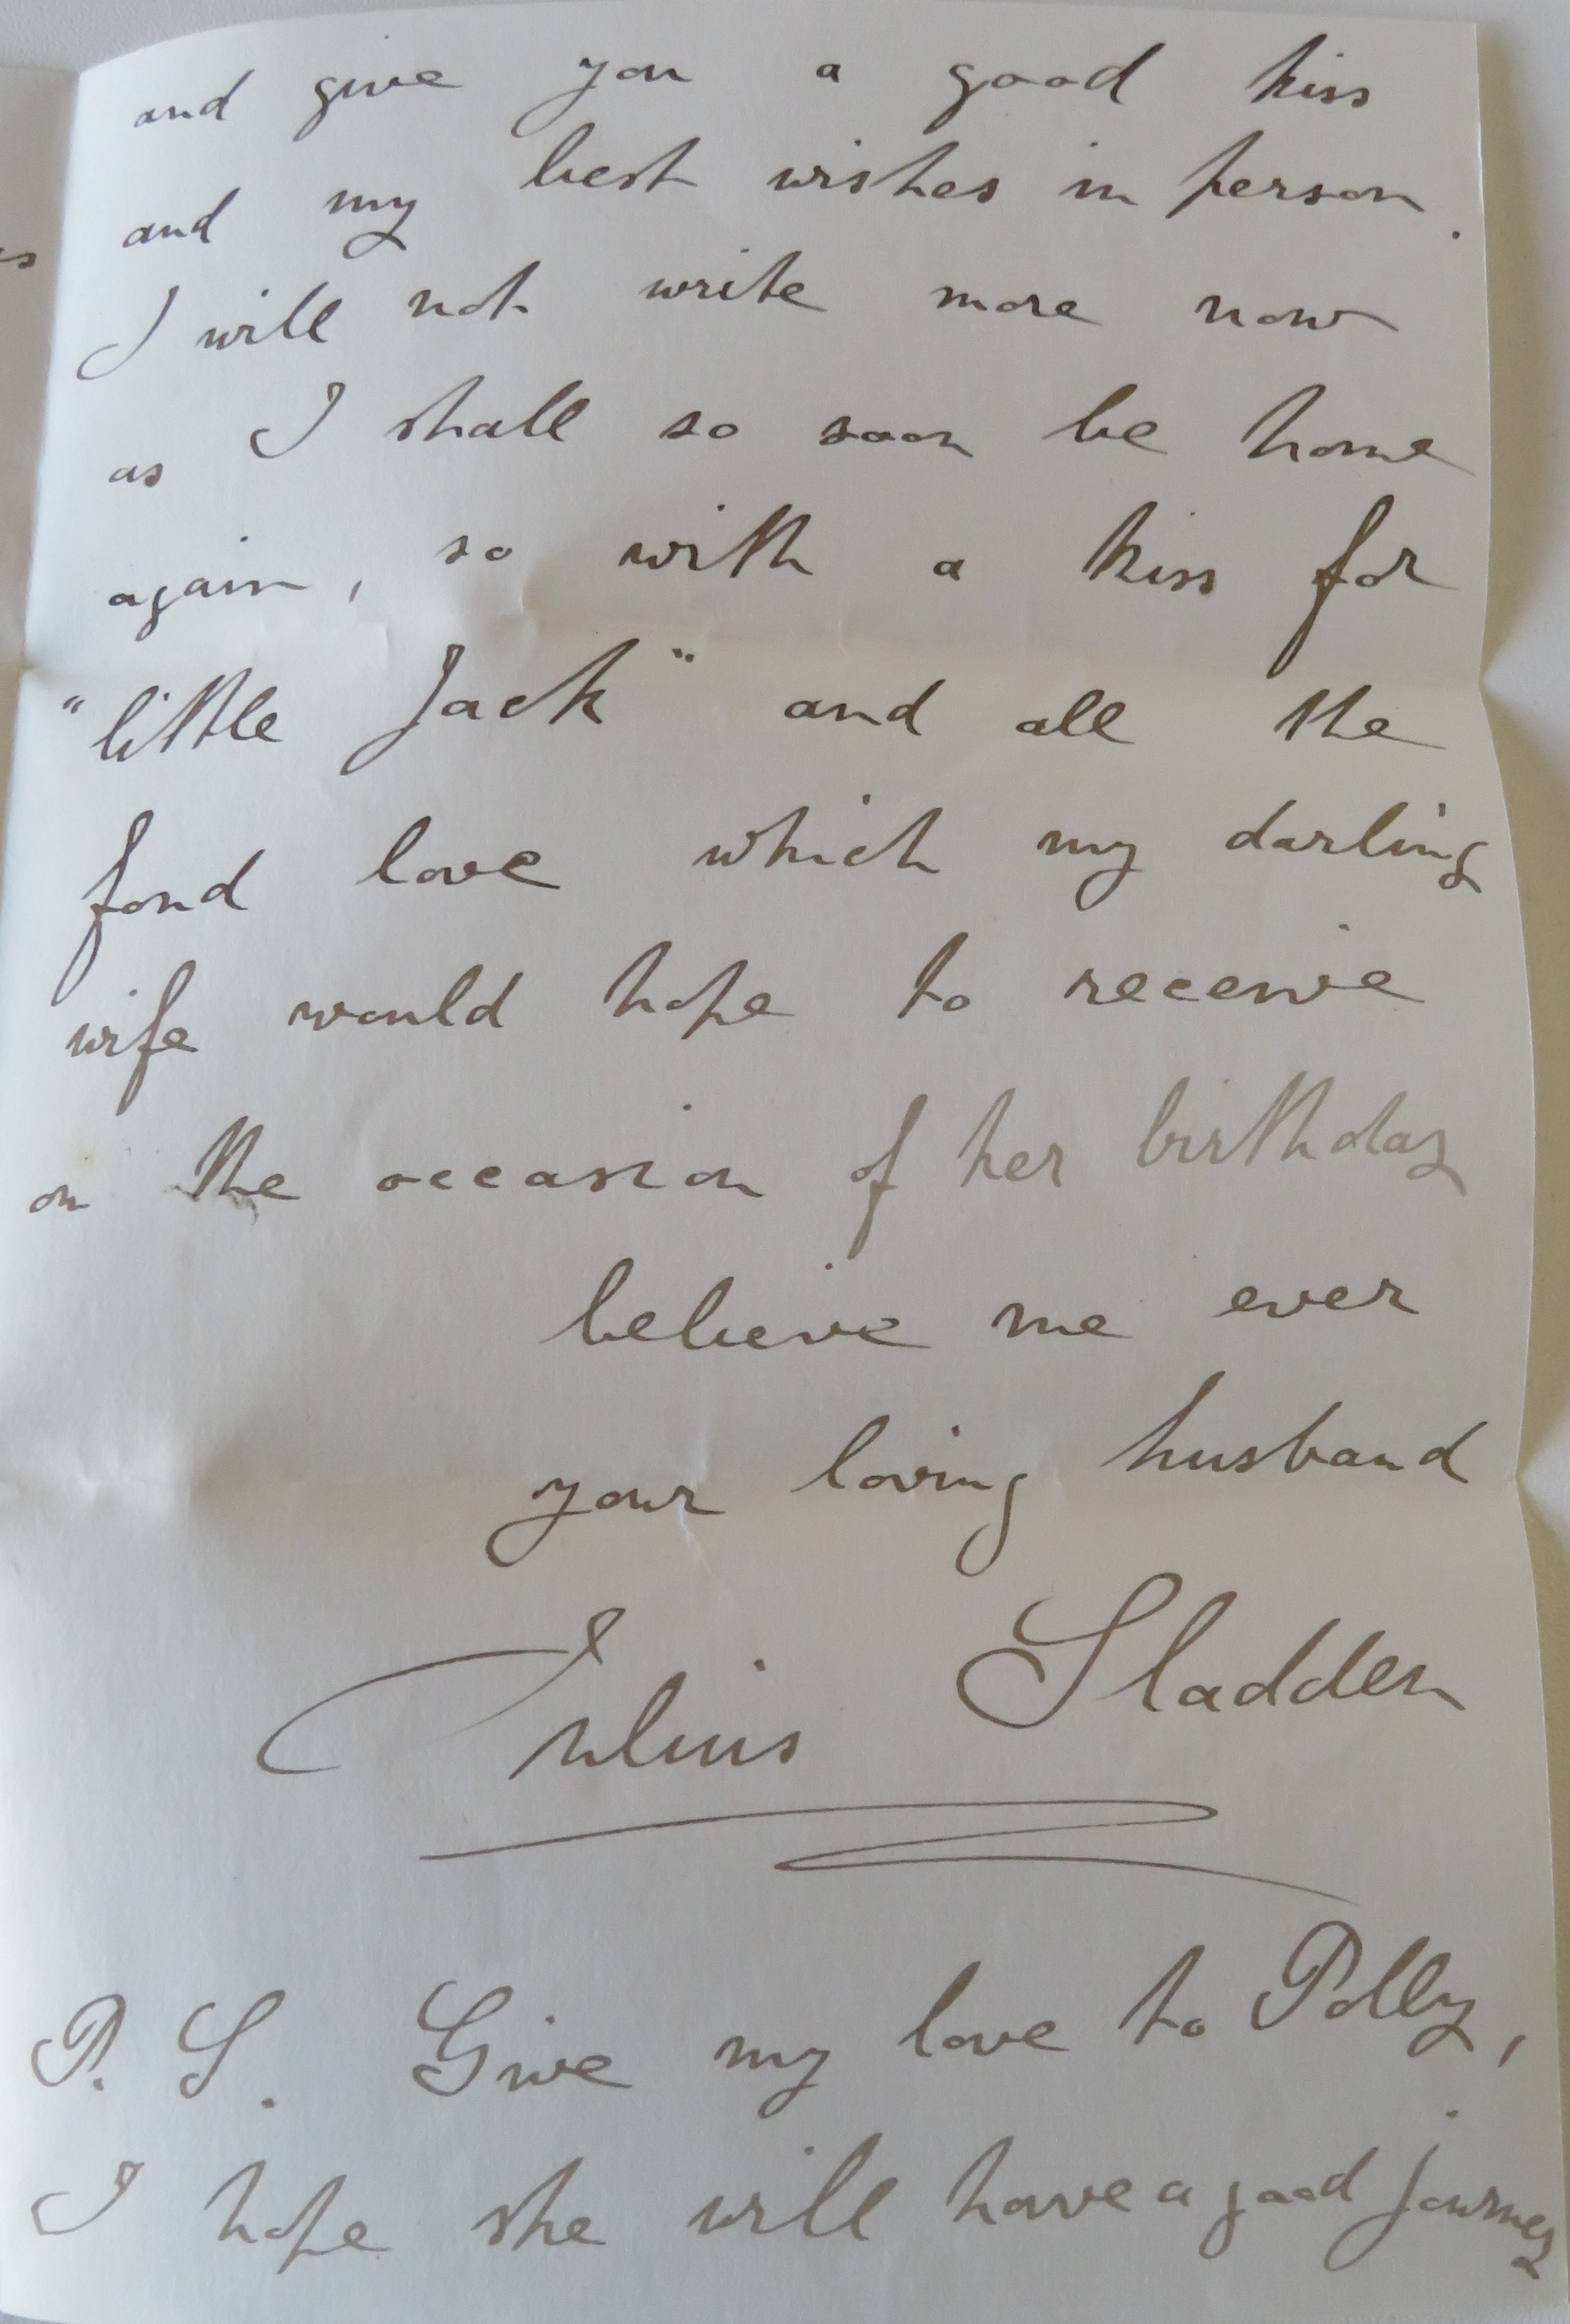 and give you a good kiss
and my best wishes in person.
I will not write more now
as I shall so soon be home
again, so with a kiss for
"little Jack" and all the
fond love which my darling
wife would hope to receive
on the occasion of her birthday
believe me ever
your loving husband
Julius Sladden
P.S. Give my love to Polly,
I hope she will have a good journey